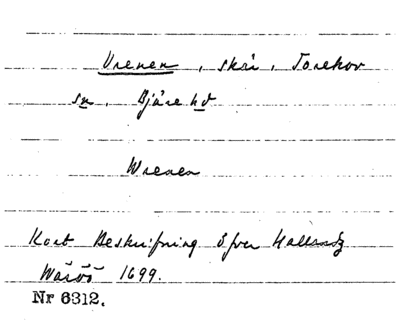 Vrenen, skär, Torekov
sn, Bjäre hd
Wrenen
Kort Beskrifning öfver Hallandz
Wäröö 1699.
Nr 6312.